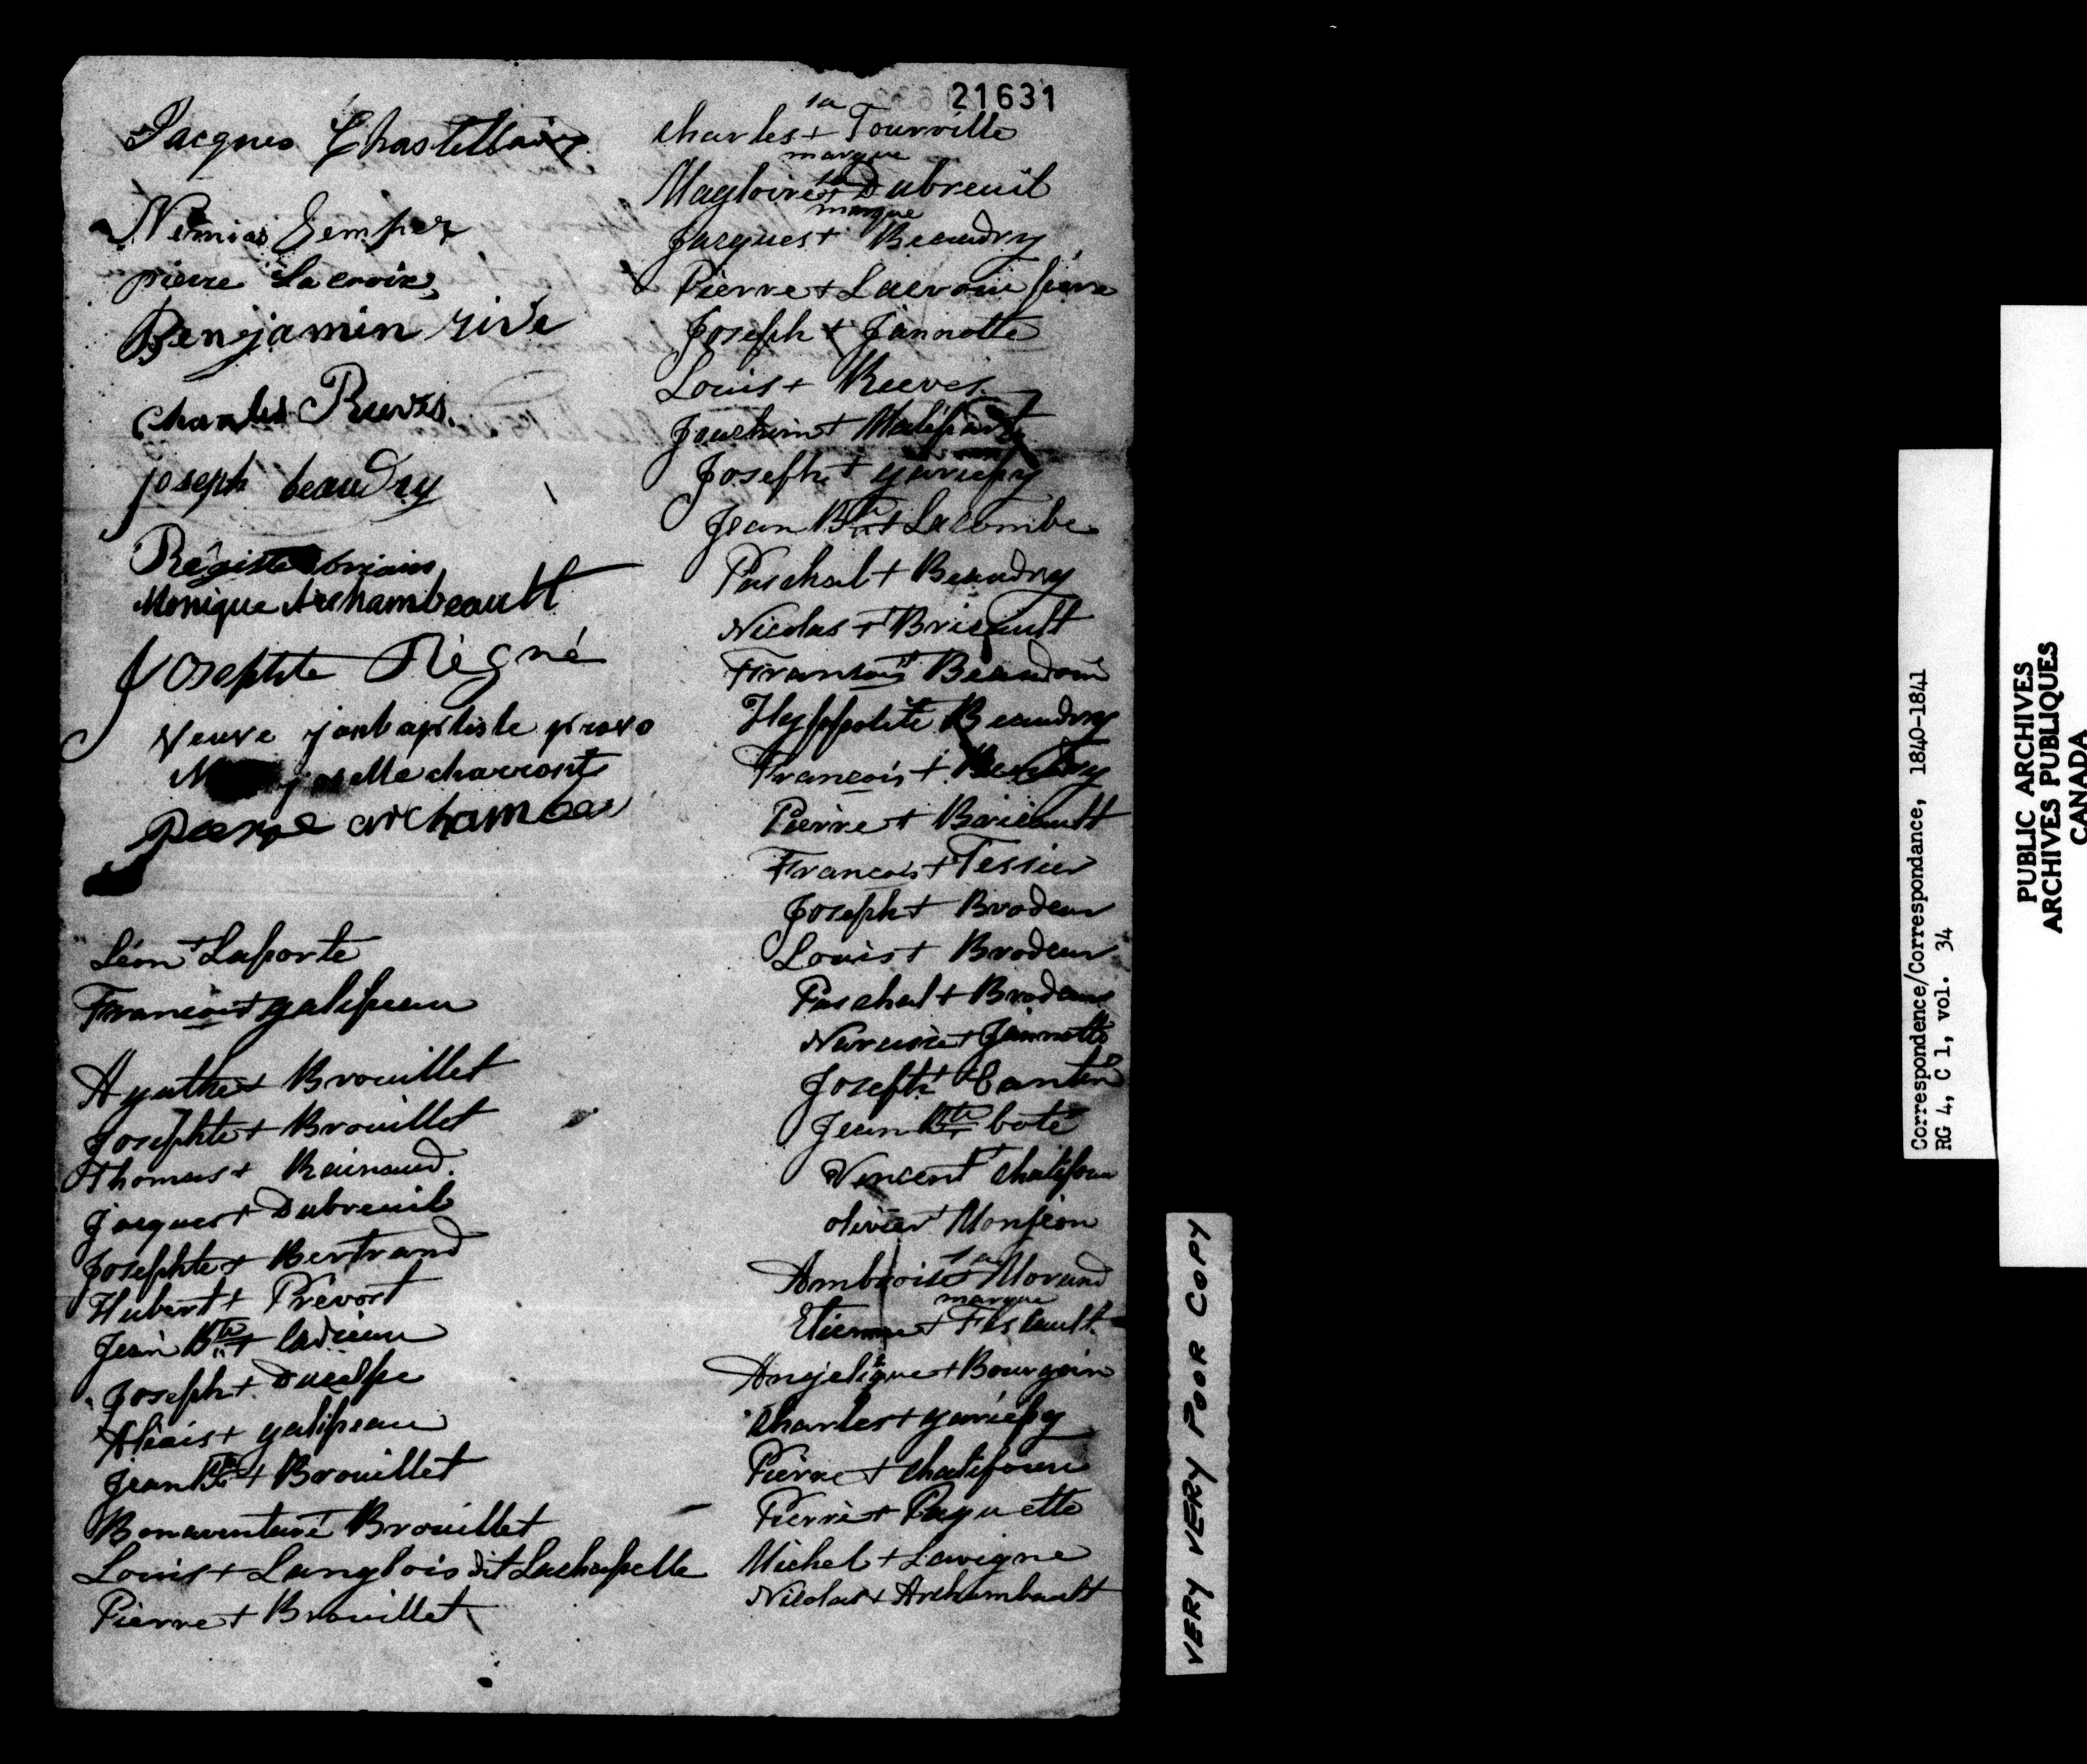 21631
Jacques Chastellain
Némias Jemper
pierre Lacroix
Benjamin rive
Charles Reeves.
joseph beaudry
Monique Archambeault
Josephte Régné
veuve janbaptiste provo
joselle charront
Pierre archambau
Léon + Laporte
François + galipeau
Agathe + Brouillet
Josephte + Brouillet
Thomas + Rainaud.
Jacques + Dubreuil
Josephte + Bertrand
Hubert + Prevost
Jean Bte + Cadieux
Joseph +
Alexis + galipeau
Jean Bte + Brouillet
Bonaventure + Brouillet
Louis + Langlois dit Lachapelle
Pierre + Brouillet
Charles + la marque Tourville
Magloire + la marque Dubreuil
Jacques + Beaudry
Pierre + Lacroix
Joseph + Jannotte
Louis + Reeves
Joachim +
Joseph + gariepy
Jean Bte + Lacombe
Paschal + Beaudry
Nicolas + Bricault
François + Beaudoin
Hyppolite + Beaudry
François + Beaudry
Pierre + Bricault
François + Tessier
Joseph + Brodeur
Louis + Brodeur
Paschal + Brodeur
Narcisse + Jannotte
Joseph + Cantin
Jean Bte + Coté
Vincent + Chalifoux
olivier + Monjeon
Ambroise + la marque Morand
Etienne +
Angelique + Bourgoin
Charles + gariépy
Pierre + Chalifoux
Pierre + Paquette
Michel + Lavigne
Nicolas + Archambault
VERY VERY POOR COPY
Correspondence/Correspondance, 1840-1841
RG 4, C 1, vol. 34
PUBLIC ARCHIVES
ARCHIVES PUBLIQUES
CANADA